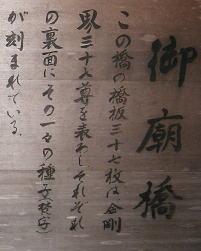 御廟橋
この橋の橋板三十七枚は金剛
界三十七尊を表わしそれぞれ
の裏面にその一々の種子(梵字)
が刻まれている。